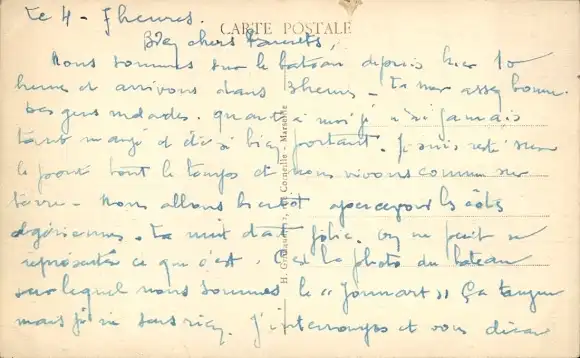 Le 4 - 7 heures.
CARTE POSTALE
Bien chers Parents,
Nous sommes sur le bateau depuis hier 10
heures et arrivons dans 3 heures - La mer assez bonne.
Pas gens malades. quant à moi je n'ai jamais
tant mangé et été si bien portant. Je suis resté sur
le pont tout le temps et nous vivons comme sur
terre - Nous allons bientôt apercevoir les côtes
algériennes. La nuit était jolie. On ne peut se
représenter ce que c'est. C'est la photo du bateau
sur lequel nous sommes le "Jonnart" Ça tangue
mais je ne sens rien. J'interromps et vous dirai
Marseille